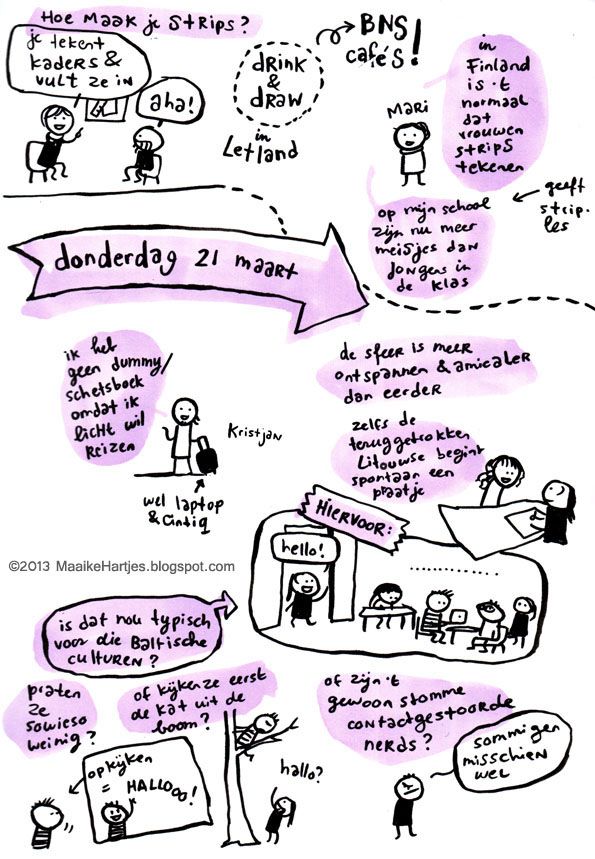 Hoe maak je strips?
je tekent
kaders &
vult ze in
aha!
drink
&
draw
in
Letland
BNS
café's!
Mari
in
Finland
is 't
normaal
dat
vrouwen
strips
tekenen
geeft
strip-
les
op mijn school
zijn nu meer
meisjes dan
jongens in
de klas
donderdag 21 maart
ik heb
geen dummy/
schetsboek
omdat ik
licht wil
reizen
Kristjan
wel laptop
& Cintiq
de sfeer is meer
ontspannen & amicaler
dan eerder
zelfs de
teruggetrokken
Litouwse begint
spontaan een
praatje
Hiervoor:
hello!
............
©2013 MaaikeHartjes.blogspot.com
is dat nou typisch
voor die Baltische
culturen?
praten
ze
sowieso
weinig?
of kijken ze eerst
de kat uit de
boom?
opkijken
= HALLOOO!
hallo?
of zijn 't
gewoon stomme
contactgestoorde
nerds?
sommigen
misschien
wel